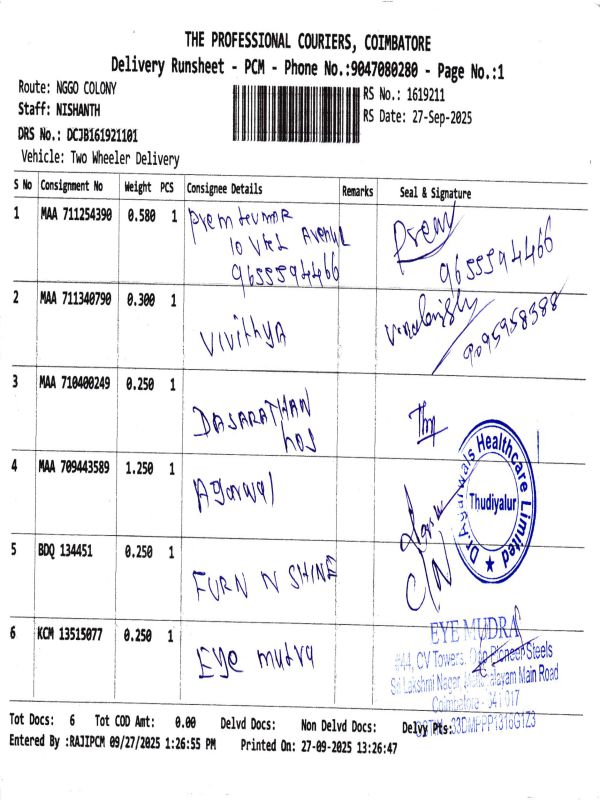 THE PROFESSIONAL COURIERS, COIMBATORE
Delivery Runsheet - PCM - Phone No.:9047080280 - Page No.:1
Route: NGGO COLONY
RS No.: 1619211
Staff: NISHANTH
RS Date: 27-Sep-2025
DRS No.: DCJB161921101
Vehicle: Two Wheeler Delivery
S No Consignment No Weight PCS Consignee Details Remarks Seal & Signature
1 MAA 711254390 0.580 1
10 Avenue
9655594466
Prem
9655594466
2 MAA 711340790 0.300 1
Vivithya
9095958388
3 MAA 710400249 0.250 1
DASARATHAN
hos
4 MAA 709443589 1.250 1
Agarwal
Dr.Agarwals Healthcare Limited
Thudiyalur
5 BDQ 134451 0.250 1
FURN N SHINE
6 KCM 13515077 0.250 1
Eye mudra
EYE MUDRA
#44, CV Towers, Opp Pioneer Steels
Sri Lakshmi Nagar, Main Road
Coimbatore - 641 017
Tot Docs: 6 Tot COD Amt: 0.00 Delvd Docs: Non Delvd Docs: Delvy Pts:
Entered By :RAJIPCM 09/27/2025 1:26:55 PM Printed On: 27-09-2025 13:26:47